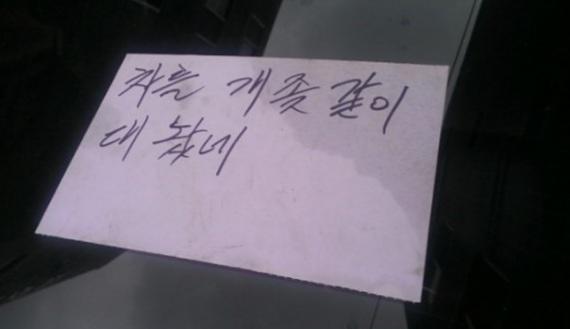 차를 개좆같이
대 놨네